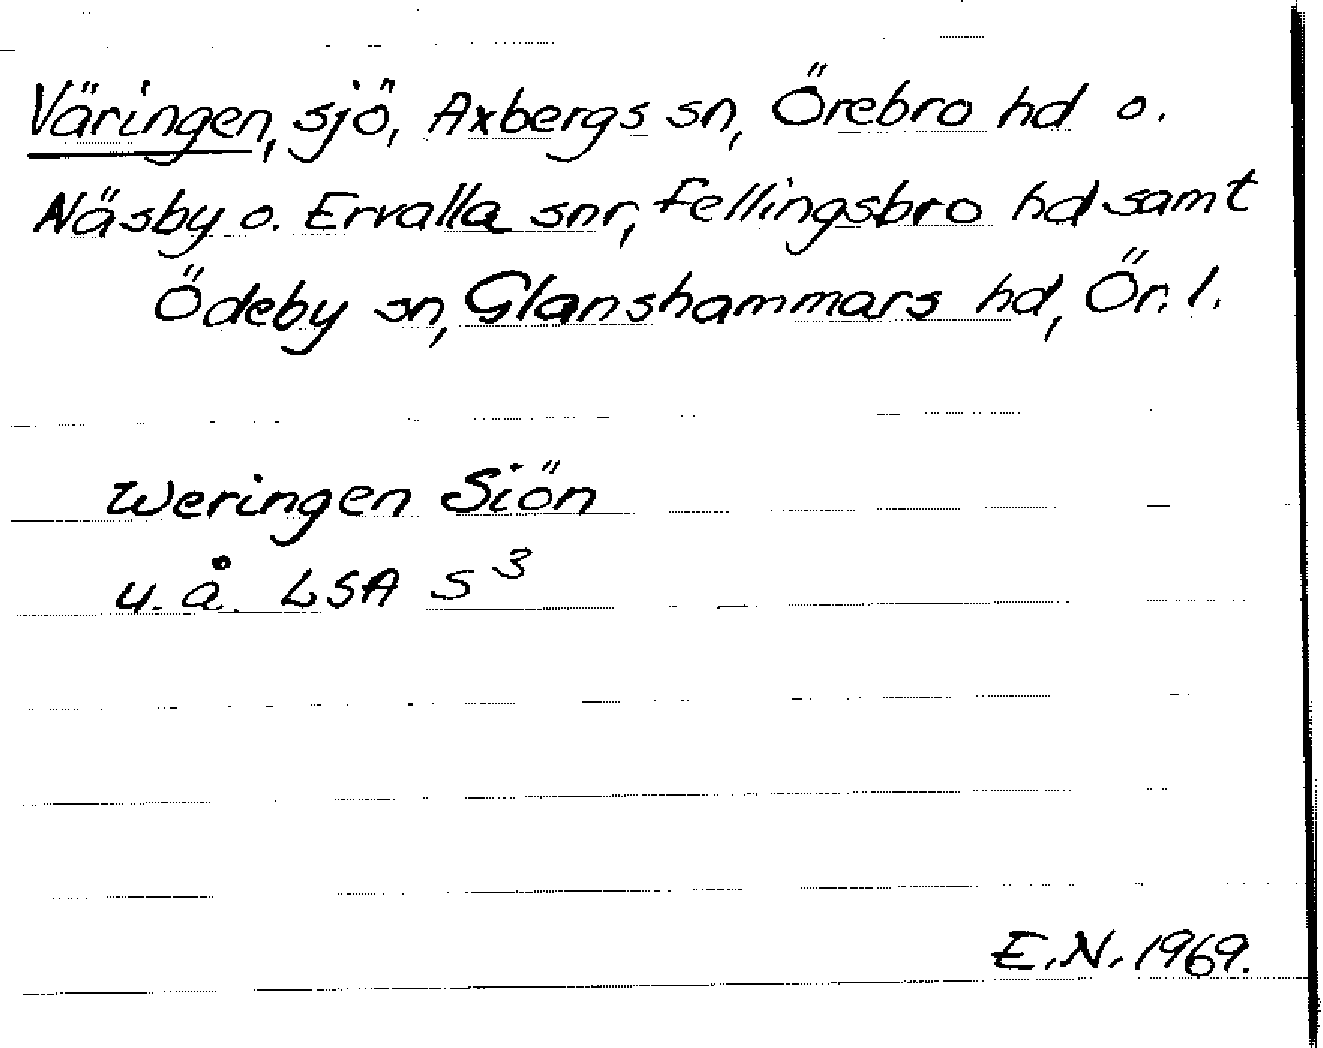 Väringen, sjö, Axbergs sn, Örebro hd o.
Näsby o. Ervalla snr, Fellingsbro hd samt
Ödeby sn, Glanshammars hd, Ör. l.
Weringen Siön
u. å. LSA S³
E.N. 1969.